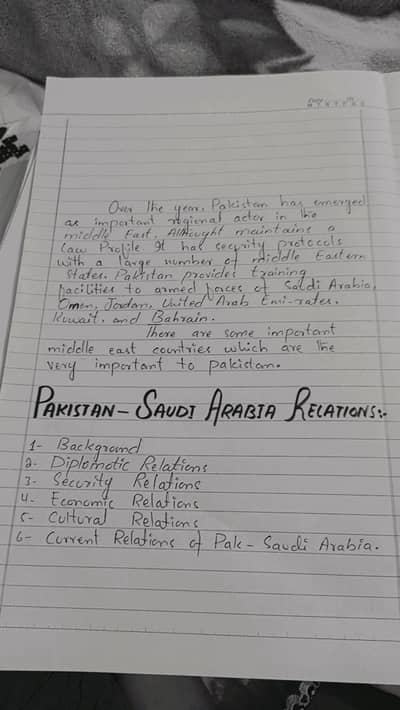 Over the year, Pakistan has emerged
as important regional actor in the
middle East, Althought maintains a
Law Profile It has security protocols
with a large number of middle Eastern
States. Pakistan provides training
facilities to armed forces of Saudi Arabia,
Omen, Jordan, United Arab Emi-rates,
Kuwait, and Bahrain.
There are some important
middle east countries which are the
very important to pakistan.
PAKISTAN - SAUDI ARABIA RELATIONS:-
1- Background
2- Diplomotic Relations
3- Security Relations
4- Economic Relations
5- Cultural Relations
6- Current Relations of Pak - Saudi Arabia.